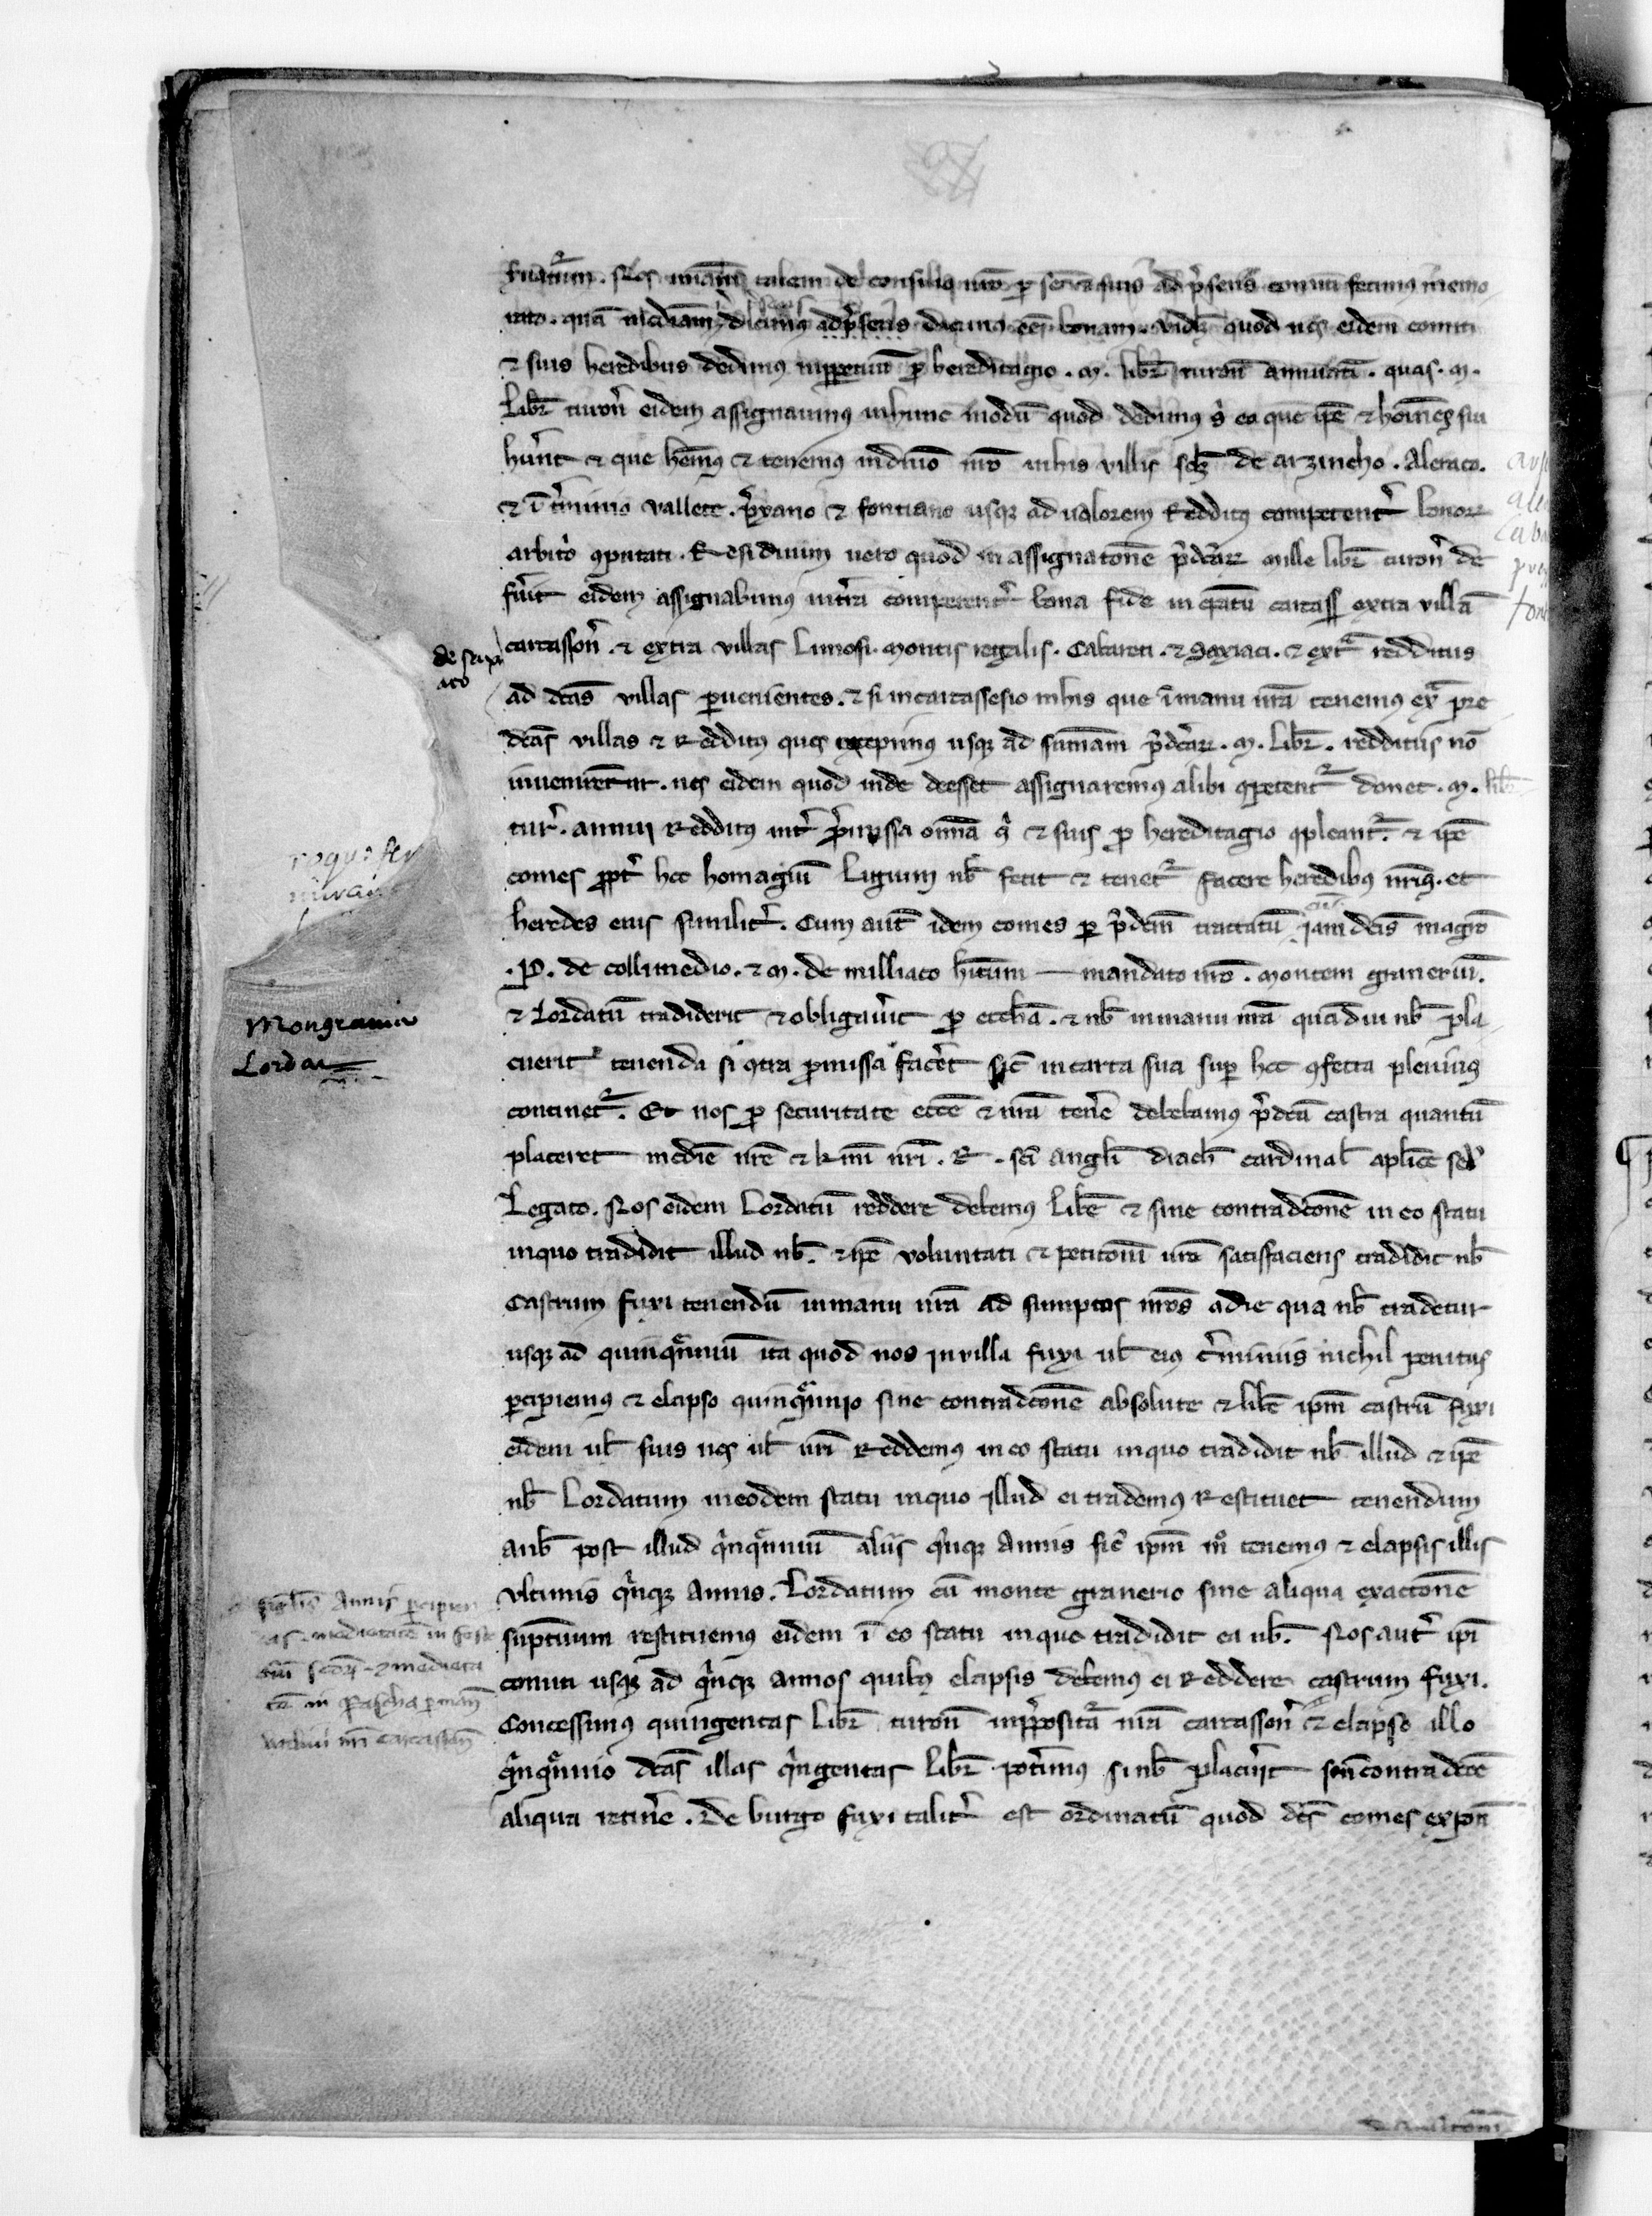 fuatum. Nos miām talem de consilio nr̄o p̱ ad p̄sens comiti fecimus memo
rato. quā mediam dicimus ad p̄sens dicimus eē bonam. videlꝫ quod nos eidem comiti
⁊ suis heredibus dedimus inꝑpetuū ꝓ hereditagio .M. libr̄ turoñ annuatī. quas .M.
Libr̄ turoñ eidem assignauimus in hunc modū quod dedimus ẜ ea que ip̄e ⁊ hoīnes sui
huīnt ⁊ que hem̄ꝰ ⁊ tenemꝰ in dn̄io nr̄o in his villis scꝫ de arzincho. Aleraco.
⁊ ī t̓mino vallete. p̄xano ⁊ fontiano usqꝫ ad ualorem Redditꝰ competent̓ bonoꝝ
arbitr̓o ꝯputati. Residuum uero quod in assignatōne p̄dc̄aꝝ mille libr̄ turoñ de
fu̓it eidem assignabimꝰ int̓ra competent̓ bona fide in ep̄atu carcass̄ extra villā
carcassoñ. ⁊ extra villas Limosi. Montis regalis. Cabareti. ⁊ Saxiaci. ⁊ ext̄ redditus
ad dc̄as villas ꝑuenientes. ⁊ si in carcassesio in his que ī manu nr̄a tenemꝰ ext̄ pre
dc̄as villas ⁊ Redditꝰ quos excepimꝰ usqꝫ ad summam p̄dc̄aꝝ .M. Libr̄. redditus nō
inuenirent̄ur. nos eidem quod inde deesset assignaremꝰ alibi ꝯpetent̓ donec .M. libr̄
tur̄. annui Redditꝰ int̓ p̄missa omīa s̓ ⁊ suis ꝓ hereditagio ꝯpleant̓. ⁊ ip̄e
comes ꝓpt̓ hec homagiū Ligium nob̄ fecit ⁊ tenet̓ facere heredibꝰ nr̄is. et
heredes eius similit̓. Cum aut̄ idem comes ꝑ p̄dc̄m tractatū jam dc̄is magr̄o
.P. de collimedio. ⁊ M. de milliaco hitum — mandato nr̄o. Montem granerium.
⁊ Lordatū tradiderit ⁊ obligau̓it ꝓ ecc̄ia. ⁊ nob̄ in manu nr̄a quādiu nob̄ pla
cuerit tenenda si ꝯtra p̄missa facēt sic̄ in carta sua sup̱ hec ꝯfecta plenius
continet̓. Et nos ꝓ securitate ecc̄e ⁊ nr̄a ten̄e debebamus p̄dc̄a castra quantū
placeret ⁊ kmī nr̄i .R. sc̄i angl̄i diac̄ cardinal̄ apl̄ice sed̓
Legato. Nos eidem Lordatū reddere debemꝰ lib̄e ⁊ sine contradc̄one in eo statu
inquo tradidit illud nob̄. ⁊ ip̄e voluntati ⁊ petitōni nr̄e satisfaciens tradidit nob̄
Castrum fuxi tenendū in manu nr̄a ad sumptus nr̄os a die qua nob̄ tradetur
usqꝫ ad quinquēniū ita quod nos in villa fuxi ul̄ eiꝰ t̓minis nichil penitus
ꝑcipiemꝰ ⁊ elapso quinquēnio sine contradc̄one absolute ⁊ lib̄e ip̄m castrū fuxi
eidem ul̄ suis nos ul̄ nr̄i Reddemꝰ in eo statu inquo tradidit nob̄ illud ⁊ ip̄e
nob̄ Lordatum in eodem statu inquo illud ei trademꝰ Restituet tenendum
a nob̄ post illud q̓nquēniū aliis q̓nqꝫ Annis sic̄ ip̄m m̊ tenemꝰ ⁊ elapsis illis
vltimis q̓nqꝫ Annis. Lordatum cū monte granerio sine aliqua exactōne
suptuum restituemꝰ eidem ī eo statu inquo tradidit ea nob̄. Nos aut̄ ip̄i
comiti usqꝫ ad q̓nqꝫ annos quibꝰ elapsis debemꝰ ei Reddere castrum fuxi.
Concessimꝰ quingentas Libr̄ turoñ in p̄positā nr̄a carcassoñ ⁊ elapso illo
q̓nquēnio dc̄as illas q̓ngentas Libr̄ pot̓imus si nob̄ placu̓it sine contradc̄one
aliqua retin̄e. De burgo fuxi talit̓ est ordinatū quod dc̄s comes expoñ
de saxi
aco
Mongranier
Lordat
singl̄is Annis ꝑcipien
das. medietatē in festo
⁊ medieta
tē in Pascha ꝑ manū
nr̄i carcassoñ